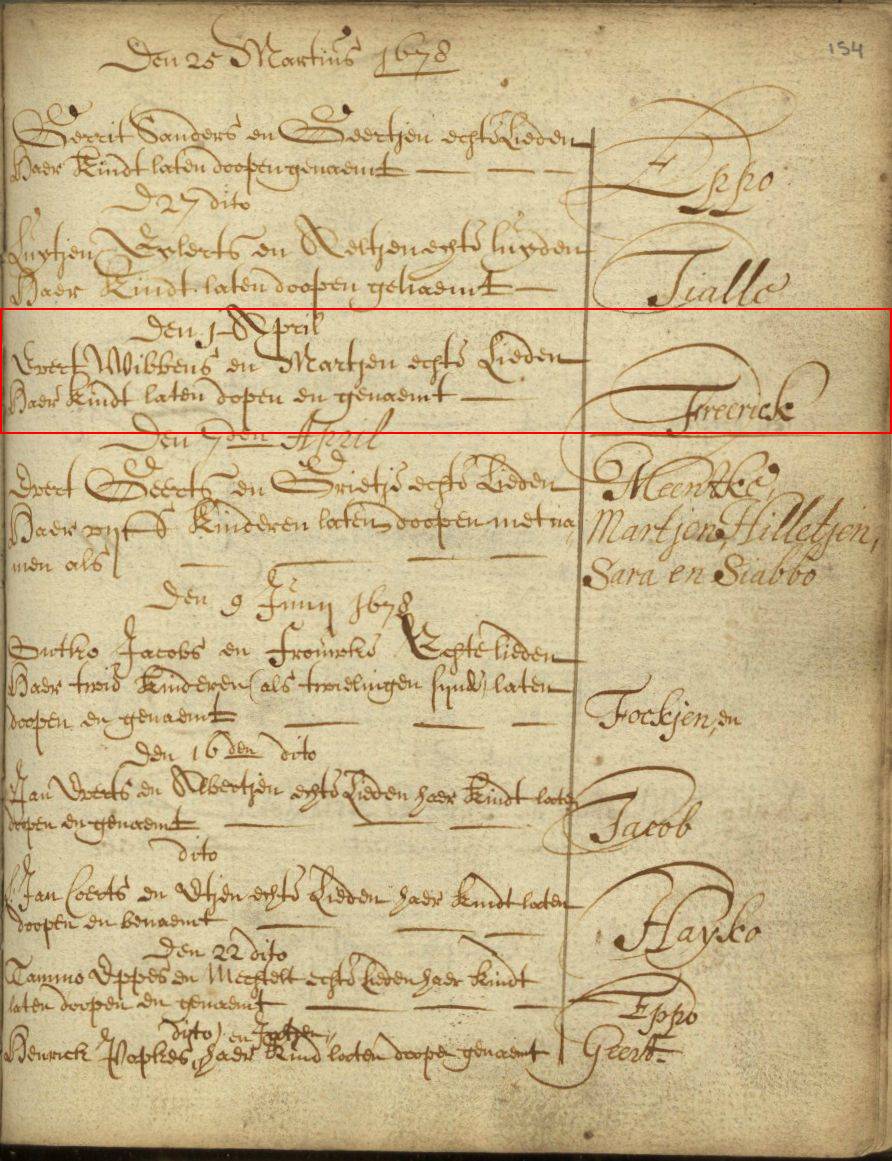 154
Den 25 Martius 1678
Gerrit Sanders en Geertjen echte Lieden
Haer Kindt laten doopen genaemt — — — Eppo
D 27 dito
Luytjen Eylerts en Aeltjen echte luyden
Haer Kindt laten doopen genaemt — Tialle
Den 1 April
Evert Wibbens en Martjen echte Lieden
Haer Kindt laten dopen en genaemt — Freerick
Den 7den April
Evert Geerts en Grietje echte Lieden Meentke,
Haer vijff Kinderen laten doopen met na- Martjen, Hilletjen,
men als — — — — Sara en Siabbo
Den 9 Junij 1678
Jacobs en Frouwke Echte lieden
Haer twie Kinderen (als twielingen sijnde) laten
doopen en genaemt — — — Fockjen, en
den 16 den dito
Jan Everts en Albertjen echte Lieden haer Kindt laten
doopen en genaemt — — — Jacob
dito
Jan Coerts en Etjen echte Lieden haer Kindt laten
doopen en benaemt — — — Hayko
Den 22 dito
Tammo Eppes en Mechtelt echte Lieden haer Kindt
laten doopen en genaemt — — — Eppo
dito en
Henrick Papkes, haer Kind laten doopen genaemt Geert